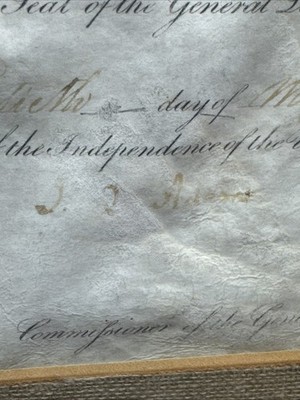 Seal of the General L
tieth day of M
f the Independence of the
J. Q. Adams
Commissioner of the Gene